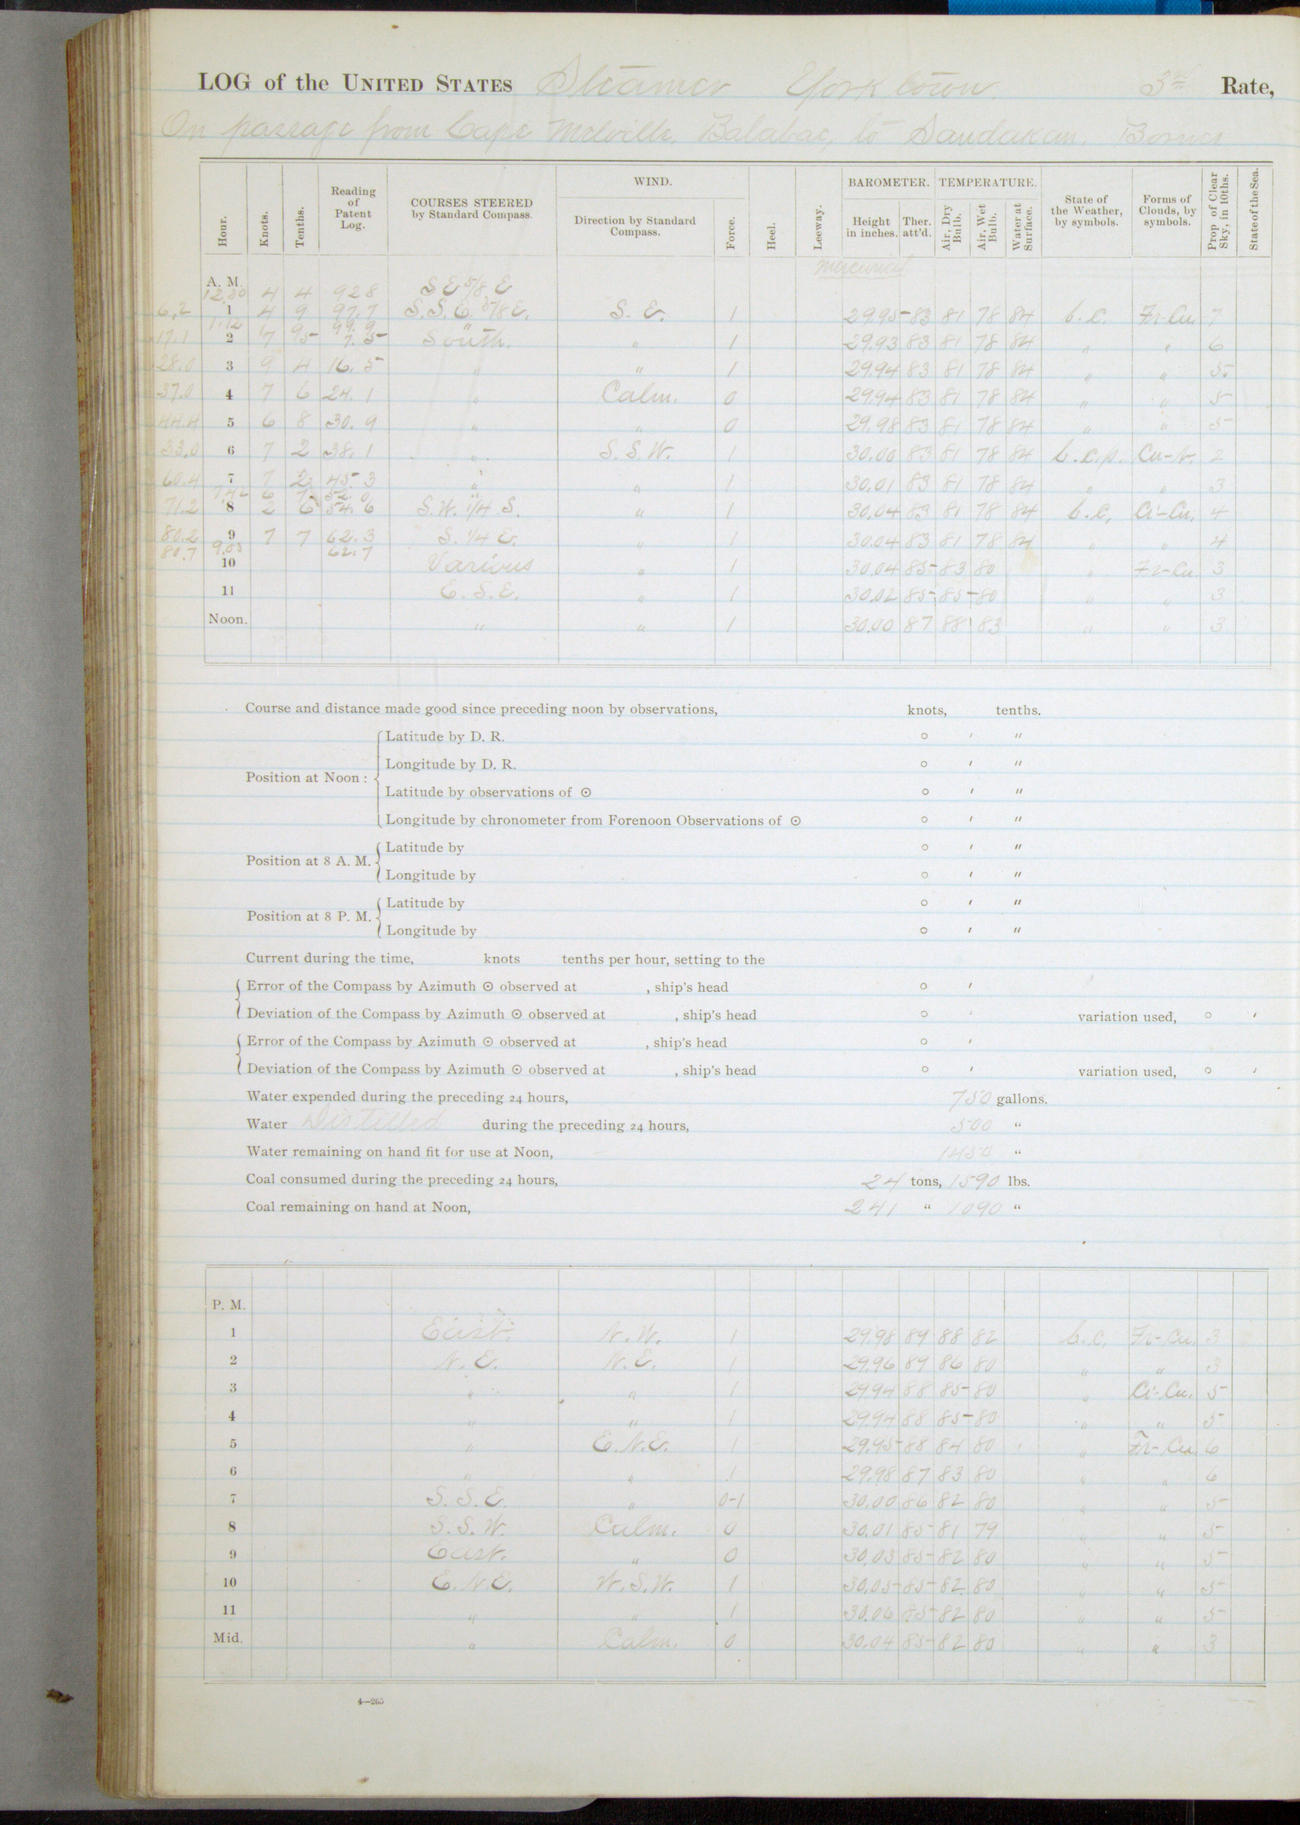 LOG of the UNITED STATES Steamer Yorktown 3rd Rate,
On passage from Cape Melville, Balabac, to Sandakan, Borneo
Hour. Knots. Tenths. Reading of Patent Log. COURSES STEERED by Standard Compass. WIND. Direction by Standard Compass. Force. Heel. Leeway. BAROMETER. Height in inches. Ther. att'd. TEMPERATURE. Air, Dry Bulb. Air, Wet Bulb. Water at Surface. State of the Weather, by symbols. Forms of Clouds, by symbols. Prop. of Clear Sky, in 10ths. State of the Sea.
Mercurial
A. M.
12.30 4 4 92.8 S E 5/8 E
6.2 1 4 9 97.7 S. S. E. 5/8 E. S. E. 1 29.95 83 81 78 84 b.c. Fr-Cu. 7
1.12 99.9 "
17.1 2 7 5 7.5 South. " 1 29.93 83 81 78 84 " " 6
28.0 3 9 4 16.5 " " 1 29.94 83 81 78 84 " " 5
37.0 4 7 6 24.1 " Calm. 0 29.94 83 81 78 84 " " 5
44.4 5 6 8 30.9 " " 0 29.98 83 81 78 84 " " 5
53.0 6 7 2 38.1 " S. S. W. 1 30.00 83 81 78 84 b.c.p. Cu-N. 2
60.4 7 7 2 45.3 " " 1 30.01 83 81 78 84 " " 3
7.42 6 7 52.0 "
71.2 8 2 6 54.6 S.W. 1/4 S. " 1 30.04 83 81 78 84 b.c. Ci-Cu. 4
80.2 9 7 7 62.3 S. 1/4 E. " 1 30.04 83 81 78 84 " " 4
80.7 9.05 62.7
10 Various " 1 30.04 85 83 80 " Fr-Cu. 3
11 E. S. E. " 1 30.02 85 85 80 " " 3
Noon. " " 1 30.00 87 88 83 " " 3
Course and distance made good since preceding noon by observations, knots, tenths.
Position at Noon :
Latitude by D. R. ° ′ ″
Longitude by D. R. ° ′ ″
Latitude by observations of ⊙ ° ′ ″
Longitude by chronometer from Forenoon Observations of ⊙ ° ′ ″
Position at 8 A. M.
Latitude by ° ′ ″
Longitude by ° ′ ″
Position at 8 P. M.
Latitude by ° ′ ″
Longitude by ° ′ ″
Current during the time, knots tenths per hour, setting to the
Error of the Compass by Azimuth ⊙ observed at , ship's head ° ′
Deviation of the Compass by Azimuth ⊙ observed at , ship's head ° ′ variation used, ° ′
Error of the Compass by Azimuth ⊙ observed at , ship's head ° ′
Deviation of the Compass by Azimuth ⊙ observed at , ship's head ° ′ variation used, ° ′
Water expended during the preceding 24 hours, 750 gallons.
Water Distilled during the preceding 24 hours, 500 "
Water remaining on hand fit for use at Noon, 1450 "
Coal consumed during the preceding 24 hours, 24 tons, 1590 lbs.
Coal remaining on hand at Noon, 241 " 1090 "
P. M.
1 East. N. W. 1 29.98 89 88 82 b.c. Fr-Cu. 3
2 N. E. N. E. 1 29.96 89 86 80 " " 3
3 " " 1 29.94 88 85 80 " Ci-Cu. 5
4 " " 1 29.94 88 85 80 " " 5
5 " E. N. E. 1 29.95 88 84 80 " Fr-Cu. 6
6 " " 1 29.98 87 83 80 " " 6
7 S. S. E. " 0-1 30.00 86 82 80 " " 5
8 S. S. W. Calm. 0 30.01 85 81 79 " " 5
9 East. " 0 30.03 85 82 80 " " 5
10 E. N. E. W. S. W. 1 30.05 85 82 80 " " 5
11 " " 1 30.06 85 82 80 " " 5
Mid. " Calm. 0 30.04 85 82 80 " " 3
4—265